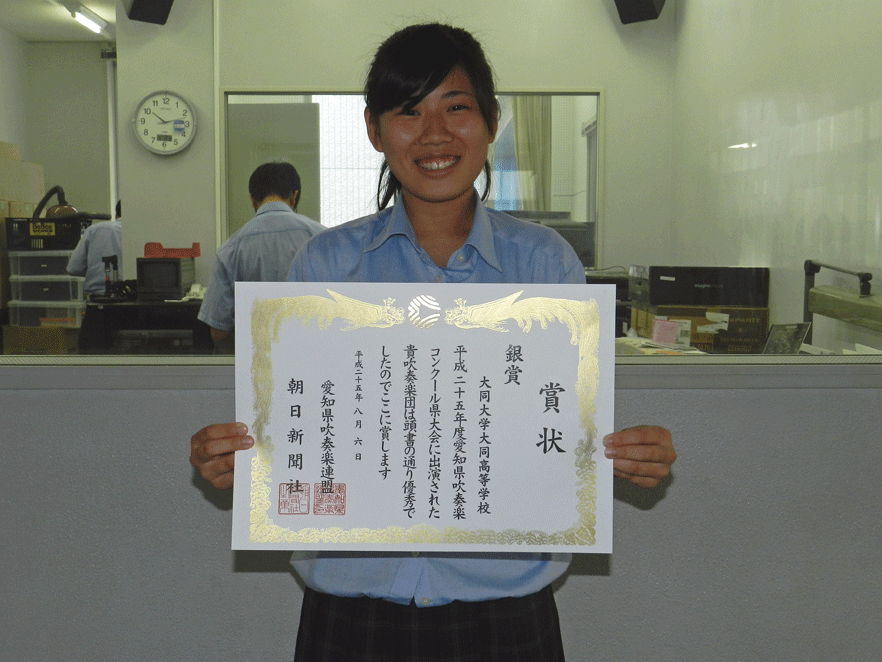 賞状
銀賞
大同大学大同高等学校
平成二十五年度愛知県吹奏楽
コンクール県大会に出演された
貴吹奏楽団は頭書の通り優秀で
したのでここに賞します
平成二十五年八月六日
愛知県吹奏楽連盟
朝日新聞社